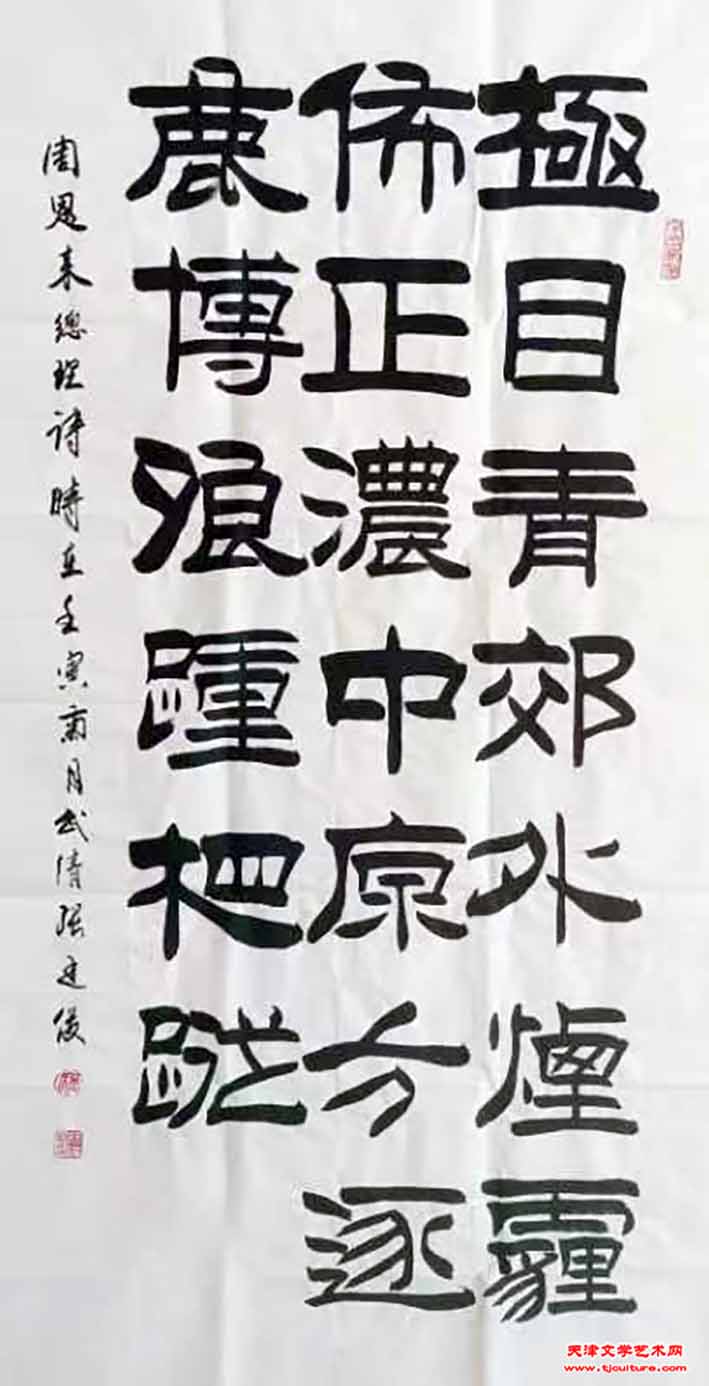 極目青郊外煙霾
佈正濃中原方逐
鹿博浪踵相蹤
周恩來總理詩時在壬寅月武清張俊
天津文学艺术网
www.tjculture.com